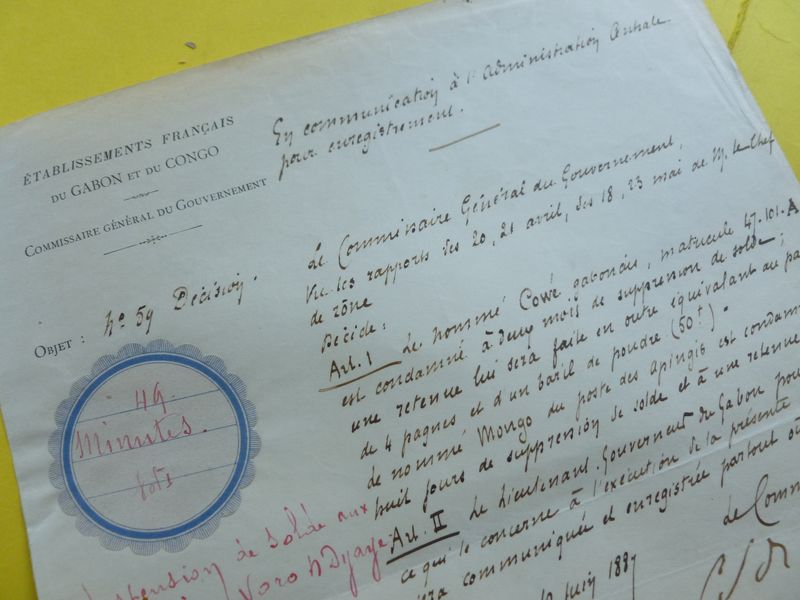 ÉTABLISSEMENTS FRANÇAIS
DU GABON ET DU CONGO
COMMISSAIRE GÉNÉRAL DU GOUVERNEMENT
OBJET : No 59 Décision.
49.
Minutes.
En communication à l'administration Centrale
pour enregistrement.
Le Commissaire Général du Gouvernement,
Vu les rapports des 20, 21 avril, des 18, 23 mai de M. le Chef
de zône
Décide :
Art. I Le nommé Cowé gabonais, matricule 47.101.A
est condamné à deux mois de suppression de solde ;
une retenue lui sera faite en outre équivalant au
de 4 pagnes et d'un baril de poudre (50f).
de nommé Mongo du poste des apingis est
huit jours de suppression de solde et à une retenue
Art. II Le Lieutenant-Gouverneur du Gabon
ce qui le concerne à l'exécution de la présente
communiquée et enregistrée partout où
Juin 1887
de solde aux